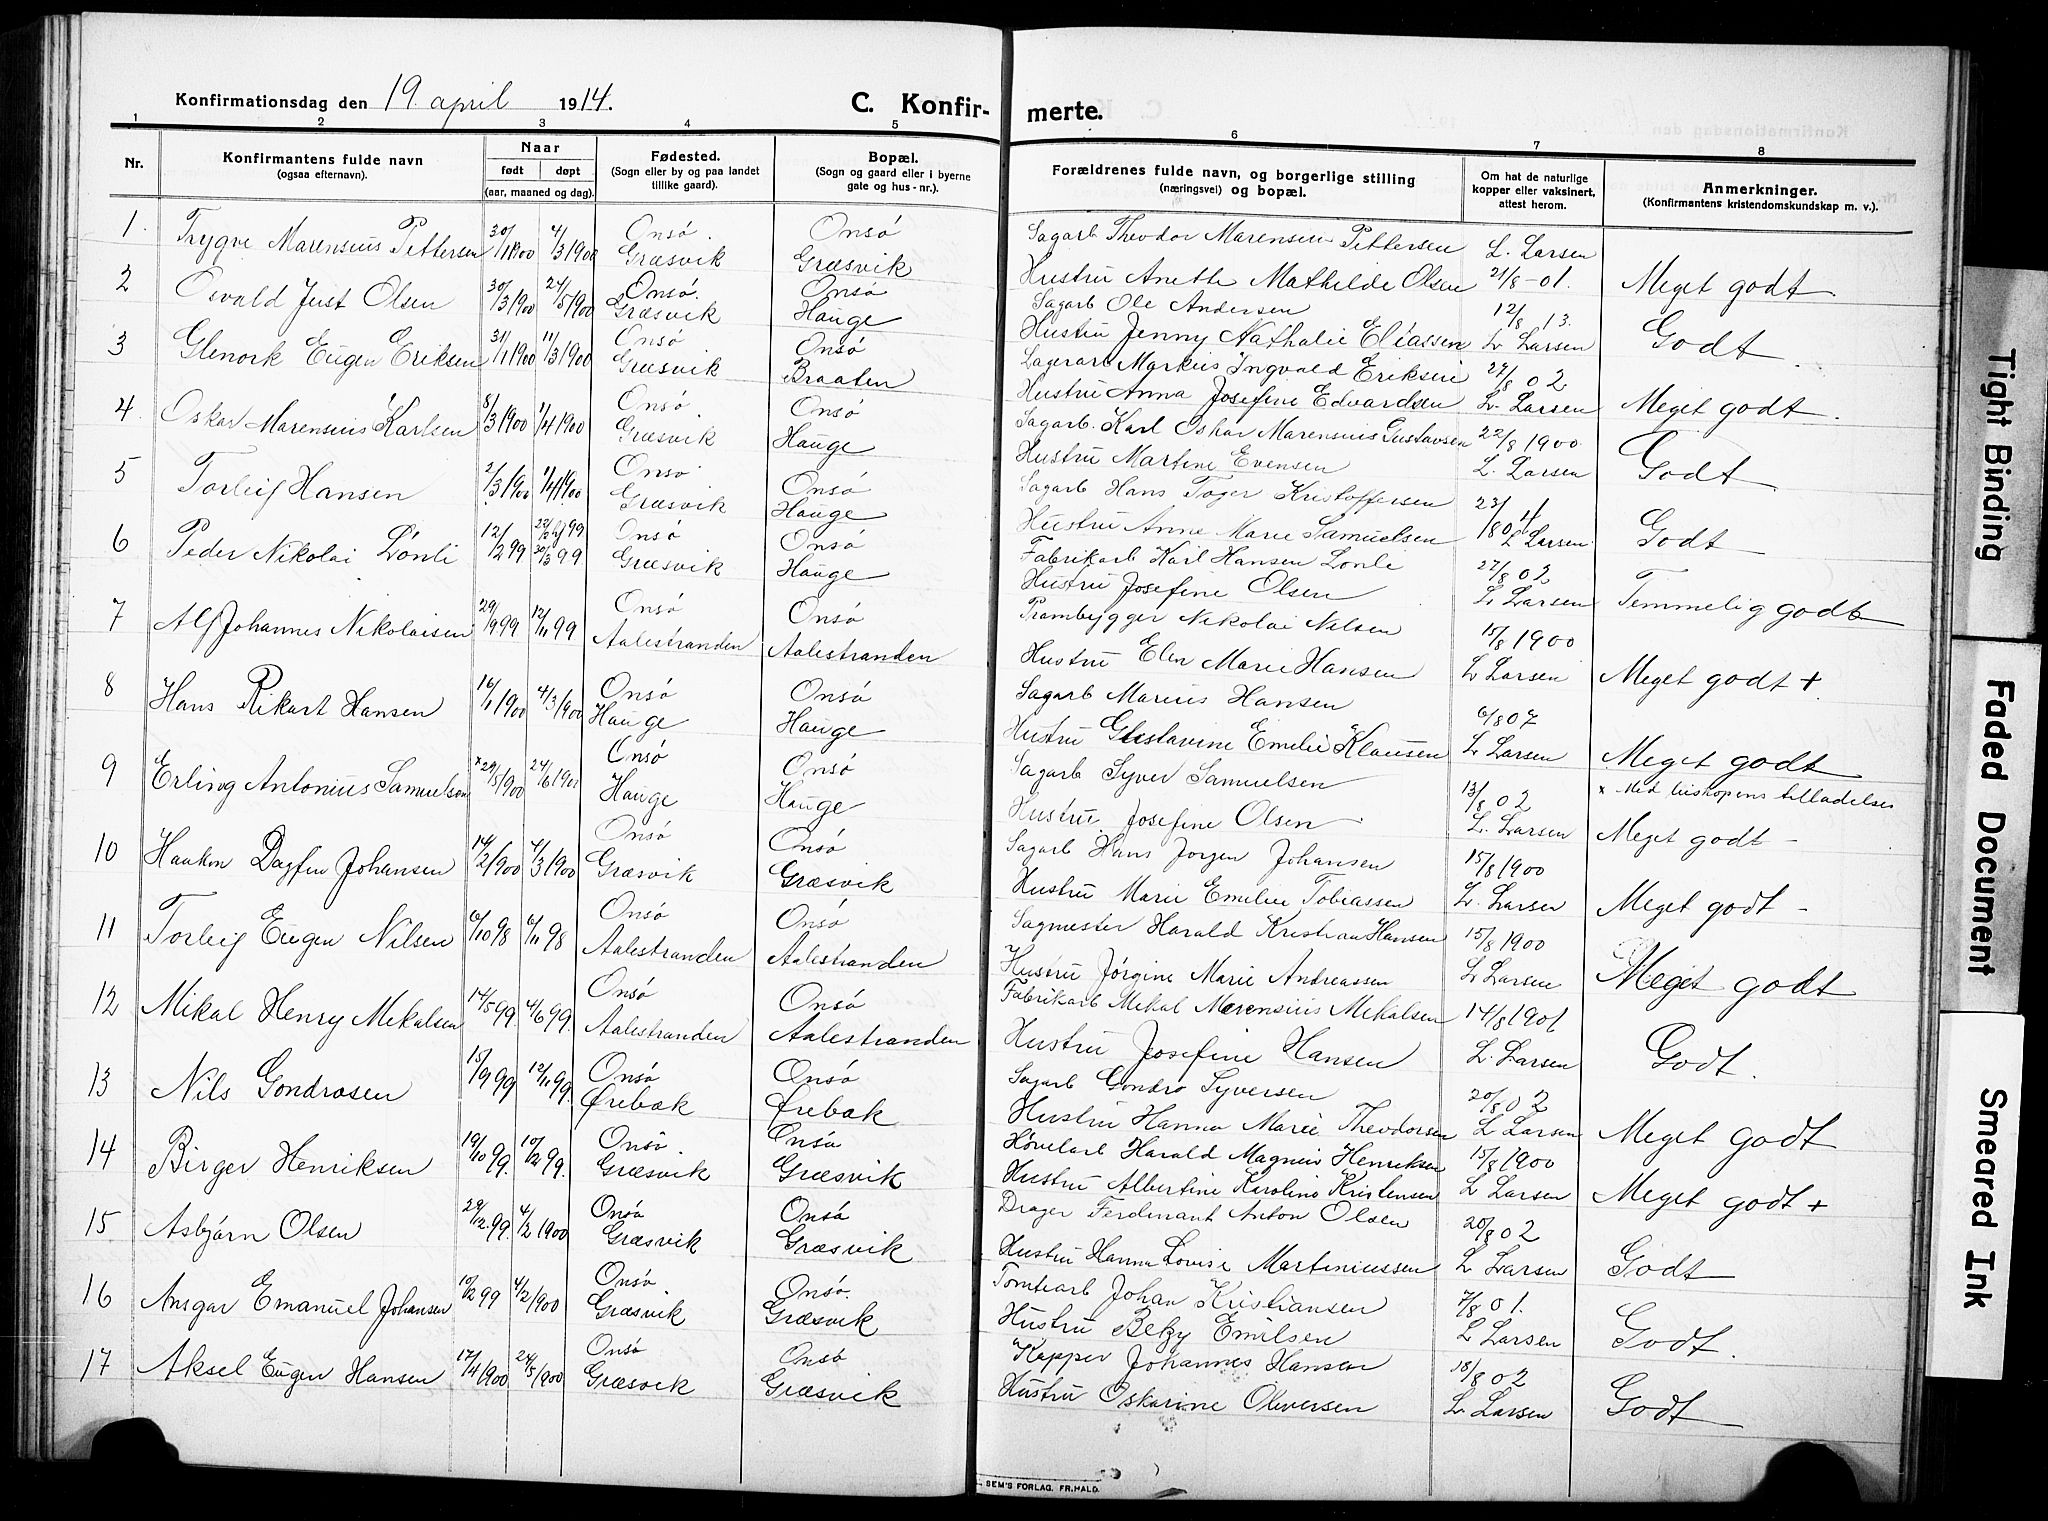 Konfirmationsdag den 19. april 1914.
C. Konfirmerte.
1 2 3 4 5 6 7 8
Nr.
Konfirmantens fulde navn
(ogsaa efternavn).
Naar
født døpt
(aar, maaned og dag).
Fødested.
(Sogn eller by og paa landet
tillike gaard).
Bopæl.
(Sogn og gaard eller i byerne
gate og hus-nr.).
Forældrenes fulde navn, og borgerlige stilling
(næringsvei) og bopæl.
Om hat de naturlige
kopper eller vaksinert,
attest herom.
Anmerkninger.
(Konfirmantens kristendomskundskap m. v.).
1 Trygve Marensius Pettersen 30/1 1900 4/3 1900 Onsø Græsvik Onsø Græsvik
Sagarb Theodor Marensius Pettersen
Hustru Anette Mathilde Olsen
L. Larsen 21/8-01. Meget godt
2 Osvald Just Olsen 30/3 1900 24/5 1900 Onsø Græsvik Onsø Hauge
Sagarb Ole Andersen
Hustru Jenny Nathalie Eliassen
12/8 13. L Larsen Godt
3 Glenork Eugen Eriksen 31/1 1900 11/3 1900 Onsø Græsvik Onsø Braaten
Sagarb Markus Ingvald Eriksen
Hustru Anna Josefine Edvardsen
27/8 02 L. Larsen Meget godt.
4 Oskar Marensius Karlsen 8/3 1900 1/4 1900 Onsø Græsvik Onsø Hauge
Sagarb. Karl Oskar Marensius Gustavsen
Hustru Martine Evensen
22/8 1900 L. Larsen Godt
5 Torleif Hansen 2/3 1900 1/4 1900 Onsø Græsvik Onsø Hauge
Sagarb Hans Toger Kristoffersen
Hustru Anne Marie Samuelsen
L Larsen Godt
6 Peder Nikolai Lønli 12/2 99 30/3 99 Onsø Græsvik Onsø Hauge
Fabrikarb Karl Hansen Lønli
Hustru Josefine Olsen
27/8 02 L Larsen Temmelig godt
7 Alf Johannes Nikolaisen 29/9 99 12/11 99 Onsø Aalestranden Onsø Aalestranden
Prambygger Nikolai Nilsen
Hustru Elen Marie Hansen
15/8 1900 L Larsen Meget godt +
8 Hans Rikart Hansen 16/1 1900 4/3 1900 Onsø Hauge Onsø Hauge
Sagarb Marius Hansen
Hustru Gustavine Emilie Klausen
6/8 07 L Larsen Meget godt
9 Erling Antonius Samuelsen x 29/5 1900 24/6 1900 Onsø Hauge Onsø Hauge
Sagarb Syver Samuelsen
Hustru Josefine Olsen
13/8 02 L. Larsen x Med biskopens tilladelse
Meget godt -
10 Haakon Dagfin Johansen 14/2 1900 4/3 1900 Onsø Græsvik Onsø Græsvik
Sagarb Hans Jørgen Johansen
Hustru Marie Emilie Tobiassen
15/8 1900 L. Larsen Meget godt -
11 Torleif Eugen Nilsen 6/10 98 6/11 98 Onsø Aalestranden Onsø Aalestranden
Sagmester Harald Kristian Hansen
Hustru Jørgine Marie Andreassen
15/8 1900 L Larsen Meget godt
12 Mikal Henry Mekalsen 14/5 99. 4/6 99. Onsø Aalestranden Onsø Aalestranden
Fabrikarb Mekal Merensius Mekalsen
Hustru Josefine Hansen
14/8 1901 L. Larsen Godt.
13 Nils Gondrosen 15/9 99 12/11 99. Onsø Ørebæk Onsø Ørebæk
Sagarb Gondro Syversen
Hustru Hanna Marie Theodorsen
20/8 02 L Larsen Meget godt
14 Birger Henriksen 19/10 99. 10/12 99. Onsø Græsvik Onsø Græsvik
Høvelarb Harald Magnus Henriksen
Hustru Albertine Karoline Kristensen
15/8 1900 L Larsen Meget godt +
15 Asbjørn Olsen 29/12 99. 4/2 1900 Onsø Græsvik Onsø Græsvik
Drager Ferdinant Anton Olsen
Hustru Hanna Lovise Martiniussen
20/8 02 L Larsen Godt
16 Ansgar Emanuel Johansen 10/12 99 4/2 1900 Onsø Græsvik Onsø. Græsvik
Tomtearb Johan Kristiansen
Hustru Betzy Emilsen
7/8 01. L Larsen Godt.
17 Aksel Eugen Hansen 17/4 1900 24/5 1900 Onsø Græsvik Onsø Græsvik
Kapper Johannes Hansen
Hustru Oskarine Oliversen
18/8 02 L. Larsen Godt
SEM'S FORLAG. FR.HALD.
Tight Binding
Faded Document
Smeared Ink